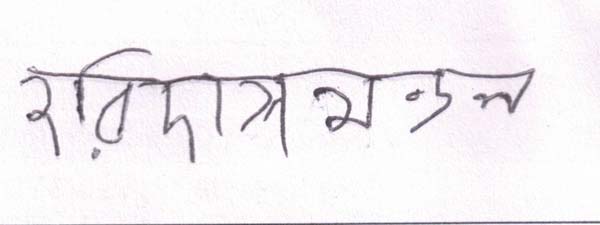 হরিদাস মন্ডল